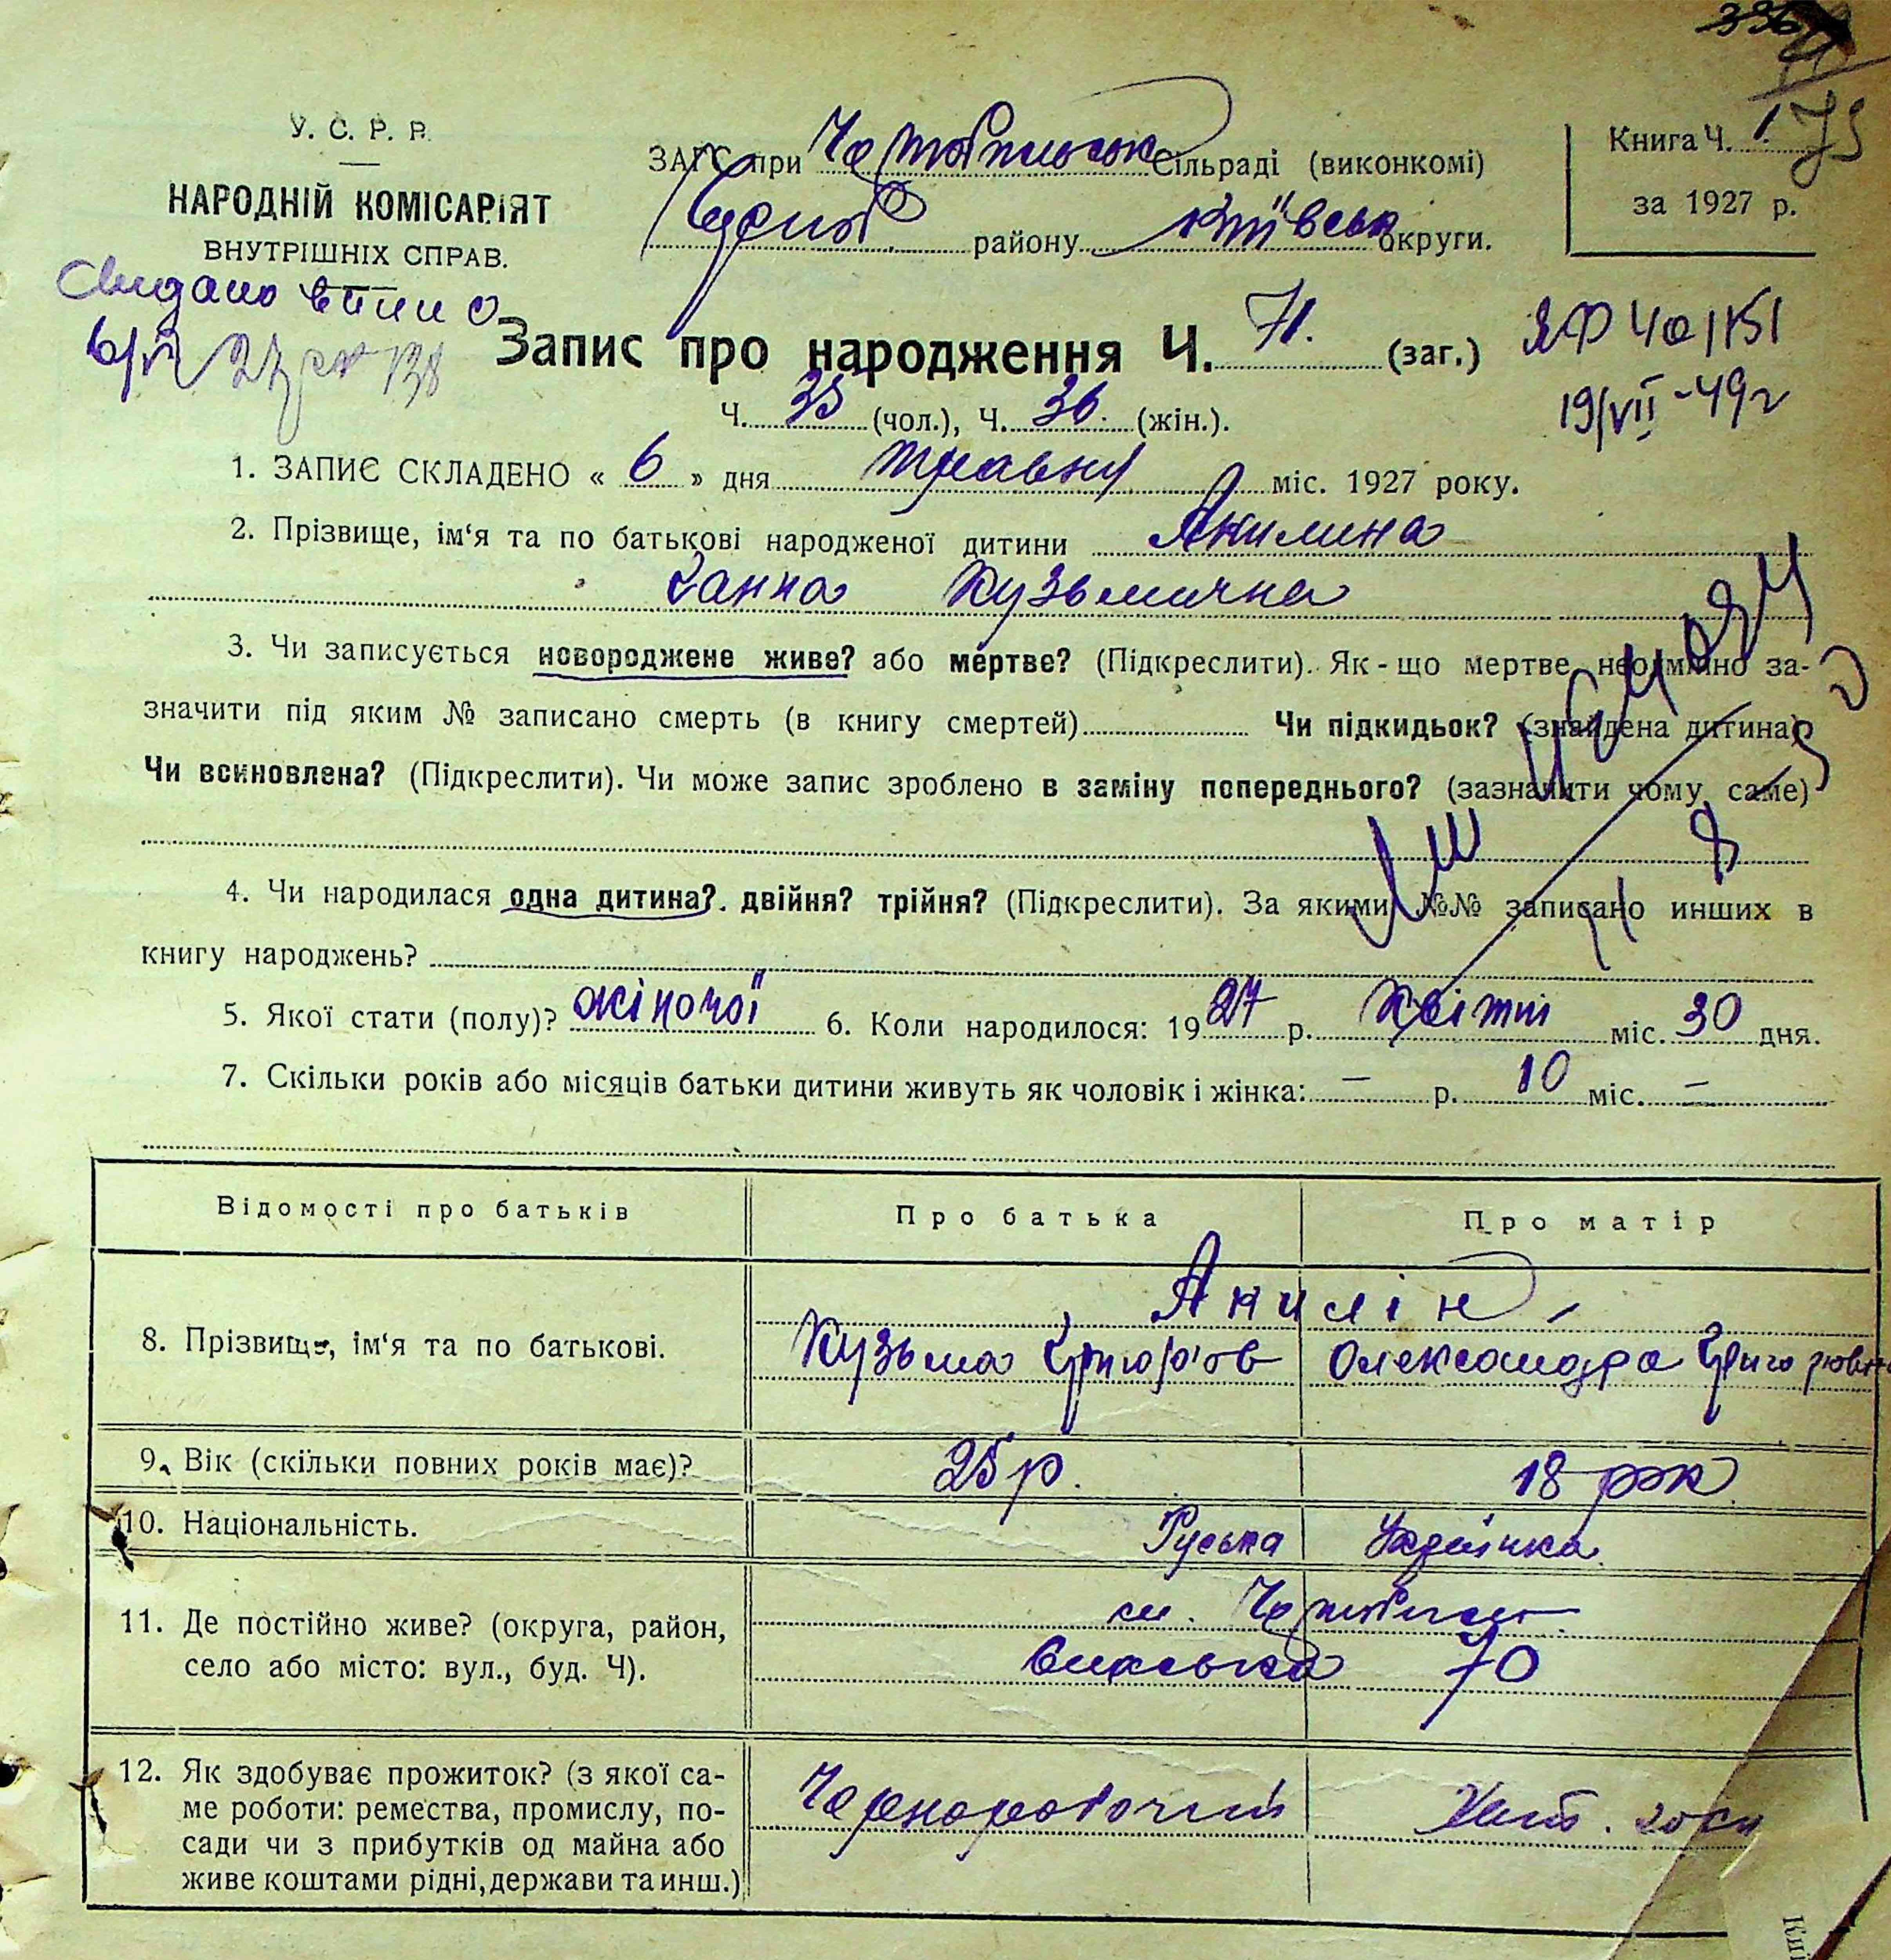 У. С. Р. Р.
НАРОДНІЙ КОМІСАРІЯТ
ВНУТРІШНІХ СПРАВ.
ЗАГС при Чорнобильськ Сільраді (виконкомі)
району Київськ округи.
Книга Ч. 1
за 1927 р.
Запис про народження Ч. 71. (заг.)
19/VII-49 г
Ч. 35 (чол.), Ч. 36. (жін.).
1. ЗАПИС СКЛАДЕНО « 6 » дня травня міс. 1927 року.
2. Прізвище, ім‘я та по батькові народженої дитини Акилина
Ганна Кузьмична
3. Чи записується новороджене живе? або мертве? (Підкреслити). Як-що мертве неодмінно за-
значити під яким № записано смерть (в книгу смертей) Чи підкидьок? (знайдена дитина)
Чи всиновлена? (Підкреслити). Чи може запис зроблено в заміну попереднього? (зазначити чому саме)
4. Чи народилася одна дитина?. двійня? трійня? (Підкреслити). За якими №№ записано инших в
книгу народжень?
5. Якої стати (полу)? жіночої 6. Коли народилося: 1927 р. Квітня міс. 30 дня.
7. Скільки років або місяців батьки дитини живуть як чоловік і жінка: — р. 10 міс. —
Відомості про батьків Про батька Про матір
Акилін
8. Прізвище, ім‘я та по батькові. Кузьма Григор'ов Олександра Григорювна
9. Вік (скільки повних років має)? 25 р. 18 рок
10. Національність. Руська Українка
11. Де постійно живе? (округа, район,
село або місто: вул., буд. Ч).
м. Чорнобиль
70
12. Як здобуває прожиток? (з якої са-
ме роботи: ремества, промислу, по-
сади чи з прибутків од майна або
живе коштами рідні, держави та инш.)
Чорноробочий
Киї